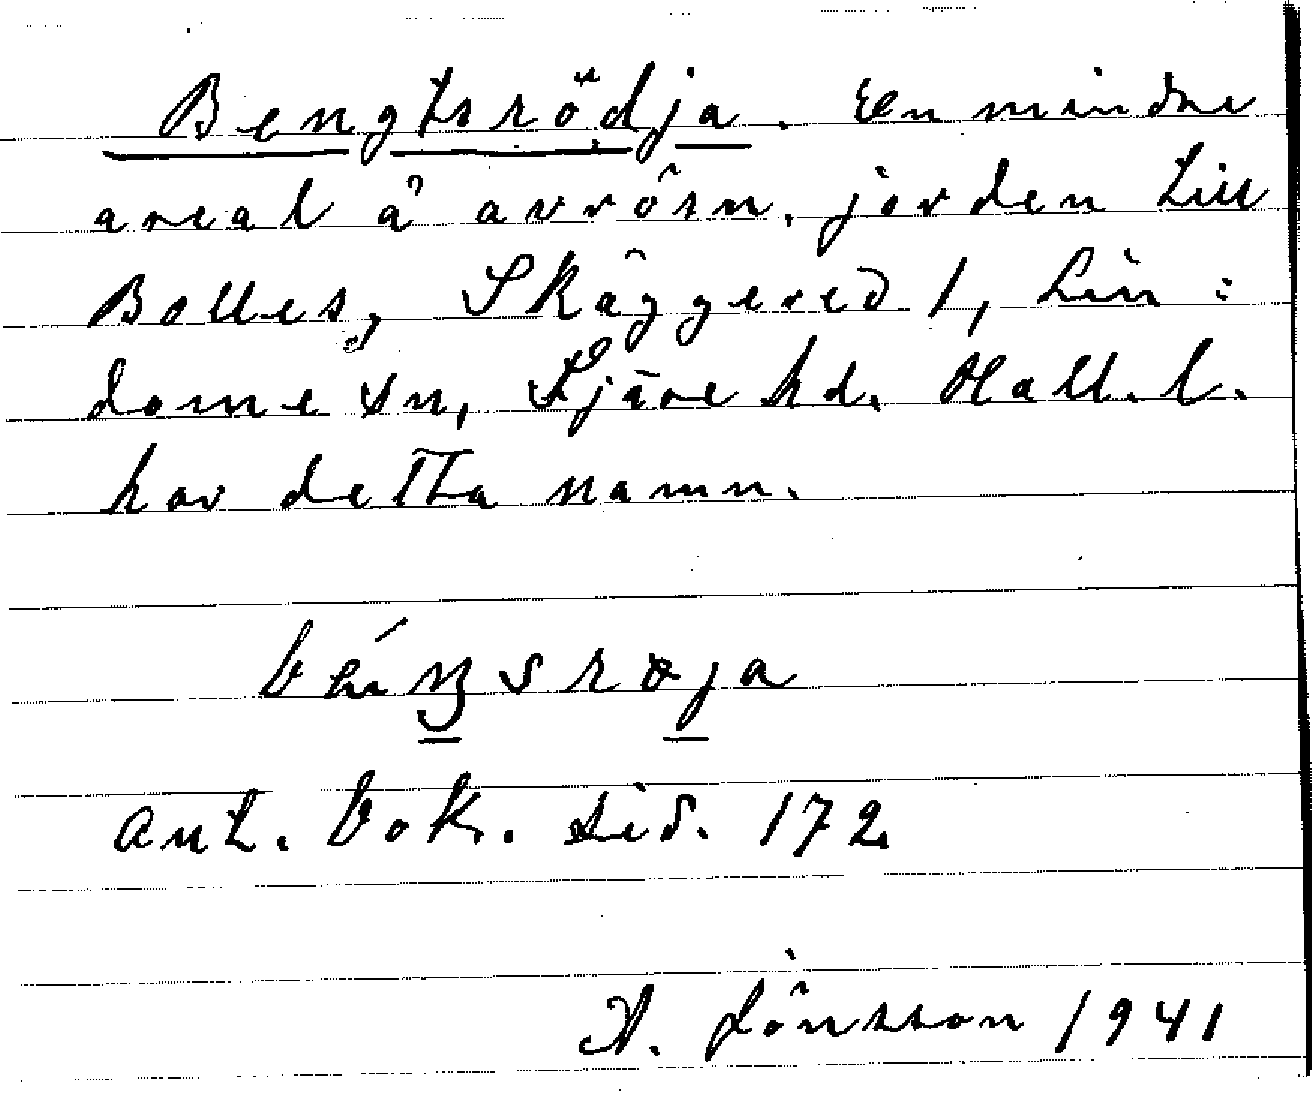 Bengtsrödja. En mindre
areal å avrösn. jorden till
Bolles, Skäggered 1, Lin:
dome sn, Fjäre hd. Hall. l.
har detta namn.
ant. bok. sid. 172
A. Jönsson 1941